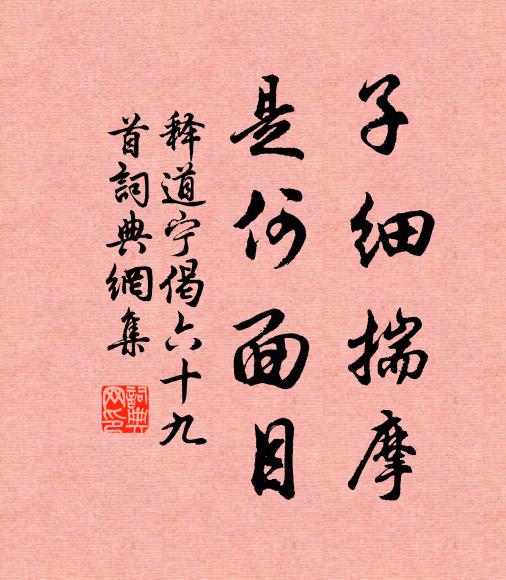 子细揣摩
是何面目
释道宁偈六十九
首詞典網集
詞典
网印